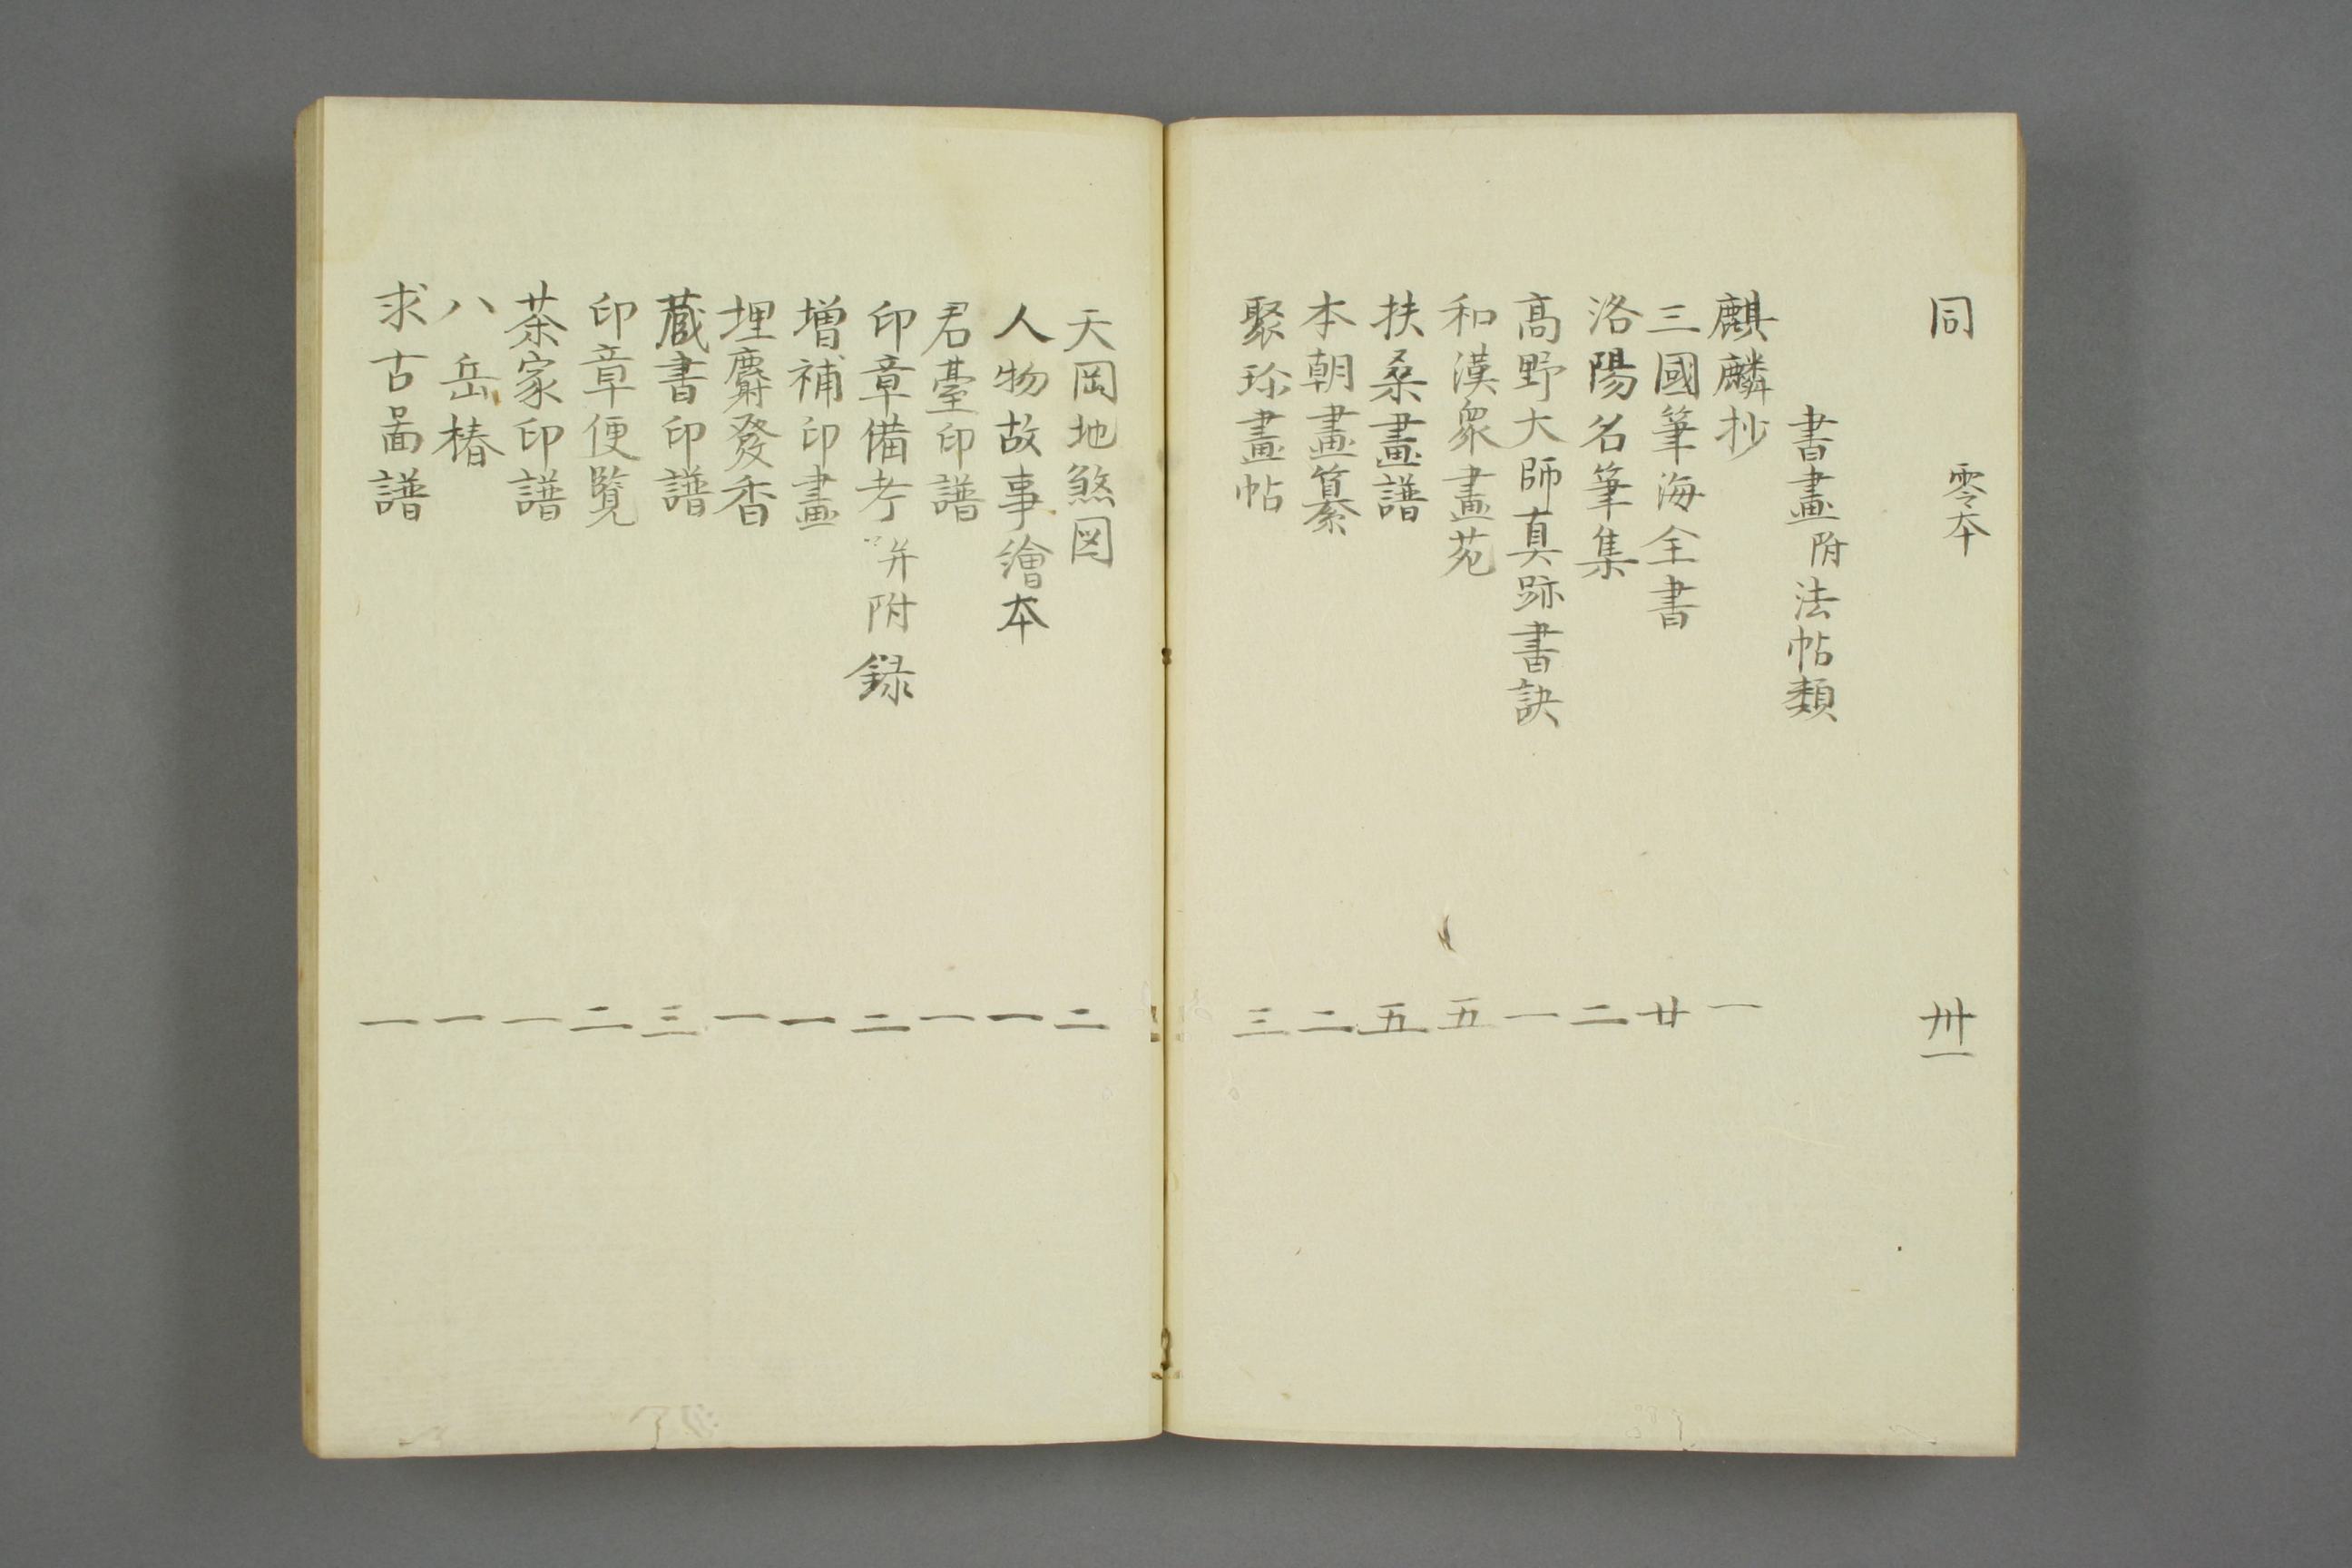 同 零本 卅一
書畫附法帖類
麒麟抄 一
三國筆海全書 廿
洛陽名筆集 二
髙野大師真跡書訣 一
和漢衆畫苑 五
扶桑畫譜 五
本朝畫纂 二
聚珎畫帖 三
天罡地煞図 二
人物故事繪本 一
君臺印譜 一
印章備考 并附録 二
増補印畫 一
埋麝發香 一
蔵書印譜 三
印章便覧 二
茶家印譜 一
八岳椿 一
求古啚譜 一